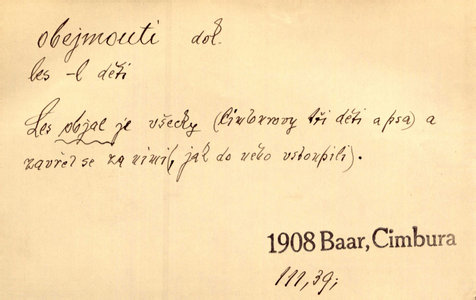 obejmouti dok.
les -l děti
Les objal je všecky (Cimburovy tři děti a psa) a
zavřel se za nimi (, jak do něho vstoupili).
1908 Baar, Cimbura
111,39;